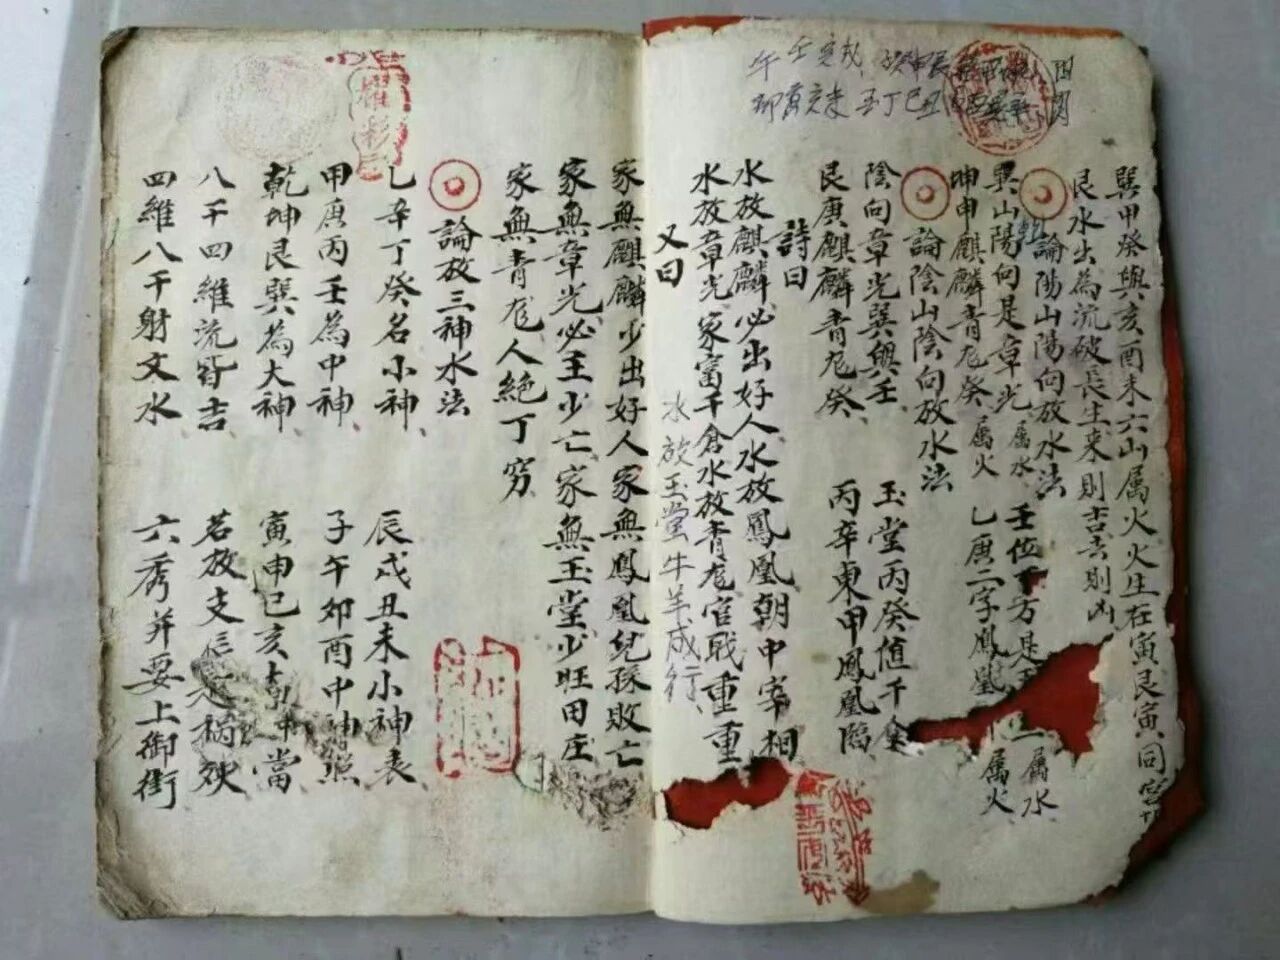 巽甲癸與亥酉未六山属火火生在寅艮寅同宮
艮水出為流破長生来則吉去則凶
論陽山陽向放水法
巽山陽向是章光属水 壬位丁方是
一属水
坤申麒麟青龙癸属火 乙庚二字鳳凰
属火
論陰山陰向放水法
陰向章光巽與壬 玉堂丙癸值千金
艮庚麒麟青龙癸 丙辛東甲鳳凰臨
詩曰
水放麒麟必出好人水放鳳凰朝中宰相
水放章光家富千倉水放青龙官戢重重
水放玉堂牛羊成行
又曰
家無麒麟少出好人家無鳳凰兒孫敗亡
家無章光必主少亡家無玉堂少旺田庄
家無青龙人绝丁穷
論放三神水法
乙辛丁癸名小神 辰戍丑未小神表
甲庚丙壬為中神 子午卯酉中神照
乾坤艮巽為大神 寅申巳亥
當
八干四維流皆吉 若放支
禍殃
四維八干射文水 六秀并要上御街